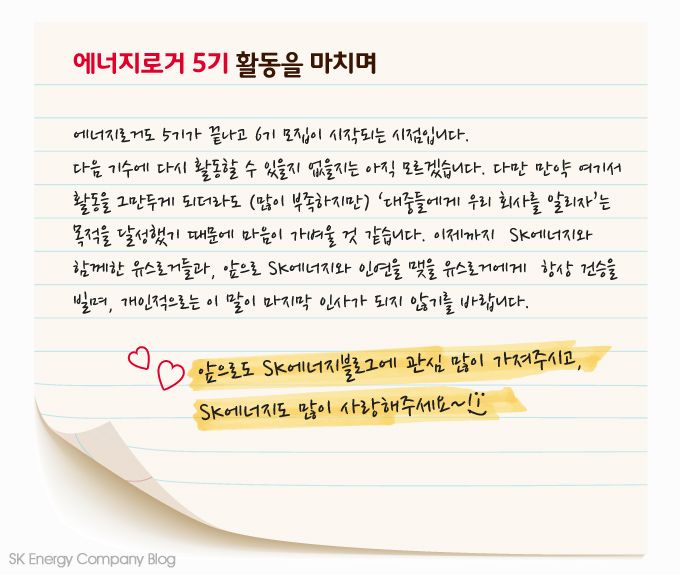 에너지로거 5기 활동을 마치며
에너지로거도 5기가 끝나고 6기 모집이 시작되는 시점입니다.
다음 기수에 다시 활동할 수 있을지 없을지는 아직 모르겠습니다. 다만 만약 여기서
활동을 그만두게 되더라도 (많이 부족하지만) ‘대중들에게 우리 회사를 알리자’는
목적을 달성했기 때문에 마음이 가벼울 것 같습니다. 이제까지 SK에너지와
함께한 유스로거들과, 앞으로 SK에너지와 인연을 맺을 유스로거에게 항상 건승을
빌며, 개인적으로는 이 말이 마지막 인사가 되지 않기를 바랍니다.
앞으로도 SK에너지블로그에 관심 많이 가져주시고,
SK에너지도 많이 사랑해주세요~!
SK Energy Company Blog